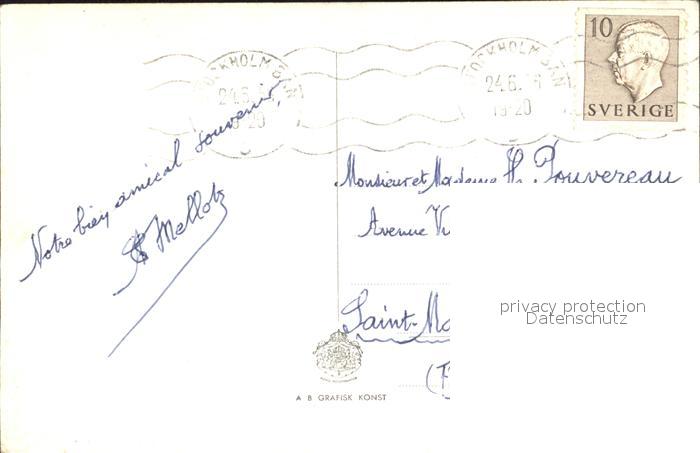 10
SVERIGE
STOCKHOLM BAN
24.6.
19-20
STOCKHOLM BAN
24.6.
19-20
Notre bien amical souvenir,
Mellot
Monsieur et Madame H. Pouvereau
Avenue
Saint-
privacy protection
Datenschutz
A B GRAFISK KONST